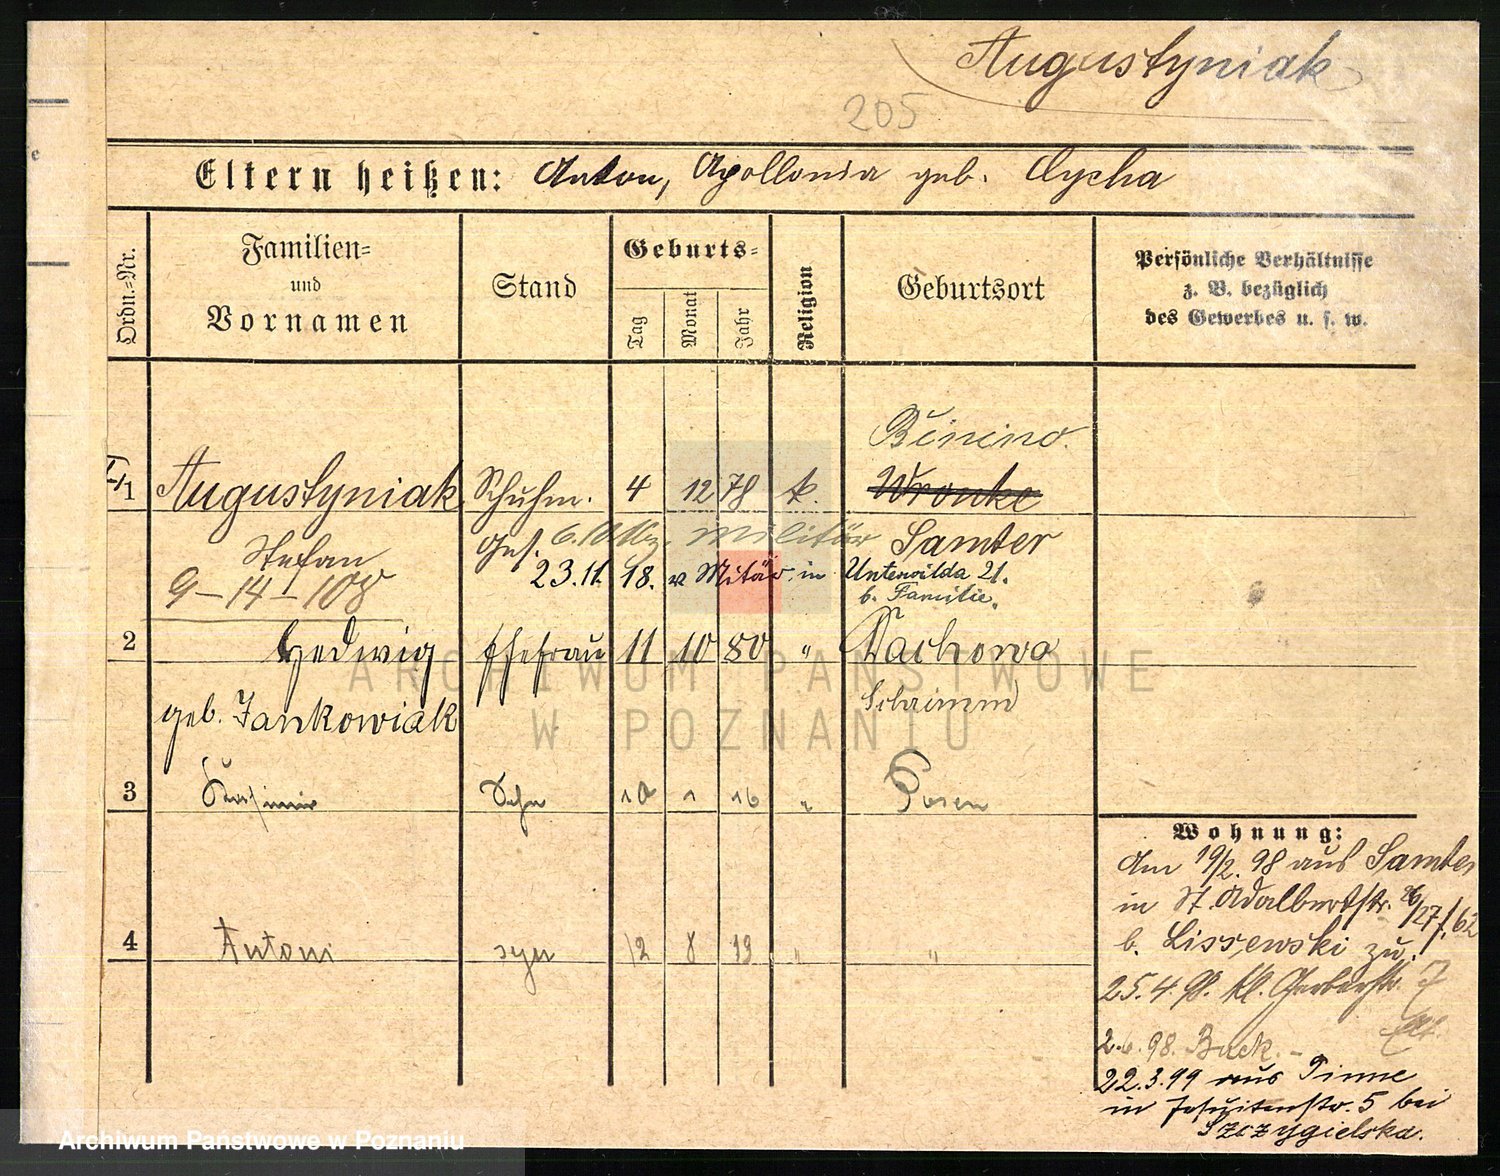 Augustyniak
205
Eltern heißen: Anton, Apollonia geb. Cycha
Ordn.-Nr.
Familien-
und
Vornamen
Stand
Geburts-
Tag
Monat
Jahr
Religion
Geburtsort
Persönliche Verhältnisse
z. B. bezüglich
des Gewerbes u. s. w.
Binino.
1 Augustyniak Schuhm. 4 12 78 k. Wronke
Stefan Ges. militär Samter
9-14-108 23.11. 18. v Mitär. in Unterwilda 21.
b. Familie.
2 Hedwig Ehefrau 11 10 80 " Tachowa
geb. Jankowiak Schrimm
3 Kasimir Sohn 10 1 16 " Posen
4 Antoni syn 12 8 13 " "
Wohnung:
Am 19/2. 98 aus Samter
in St. Adalbertstr. 26/27 f. 62
b. Lissewski zu.
25.4.98. kl. Gerberstr. 7
2.6.98. Buck. -
22.3.99 aus Pinne
in Jesuitenstr. 5 bei
Szczygielska.
ARCHIWUM PAŃSTWOWE
W POZNANIU
Archiwum Państwowe w Poznaniu